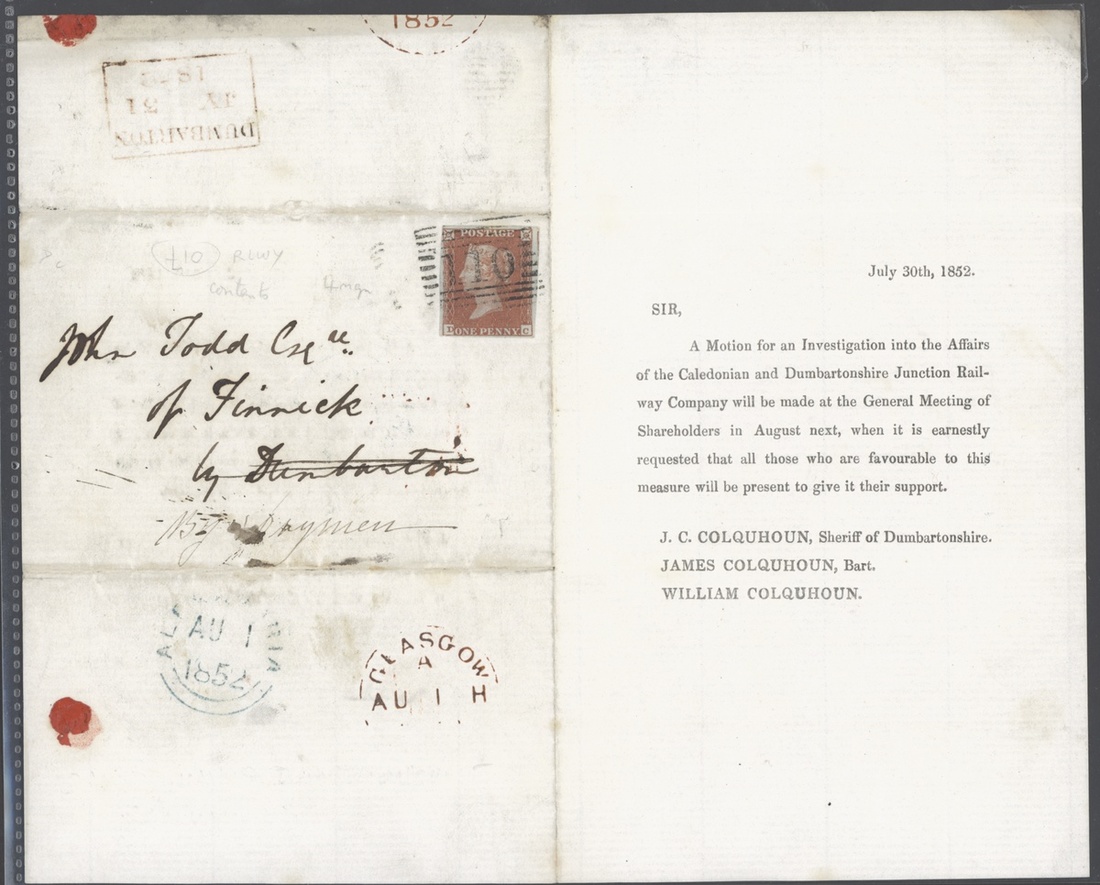 1852
DUMBARTON
JY 31
POSTAGE
110
ONE PENNY C
£10 RLWY
contents
John Todd Esqre
of Finnick
by Dumbarton
By Drymen
AU 1
1852
GLASGOW
A
AU 1 H
July 30th, 1852.
SIR,
A Motion for an Investigation into the Affairs
of the Caledonian and Dumbartonshire Junction Rail-
way Company will be made at the General Meeting of
Shareholders in August next, when it is earnestly
requested that all those who are favourable to this
measure will be present to give it their support.
J. C. COLQUHOUN, Sheriff of Dumbartonshire.
JAMES COLQUHOUN, Bart.
WILLIAM COLQUHOUN.